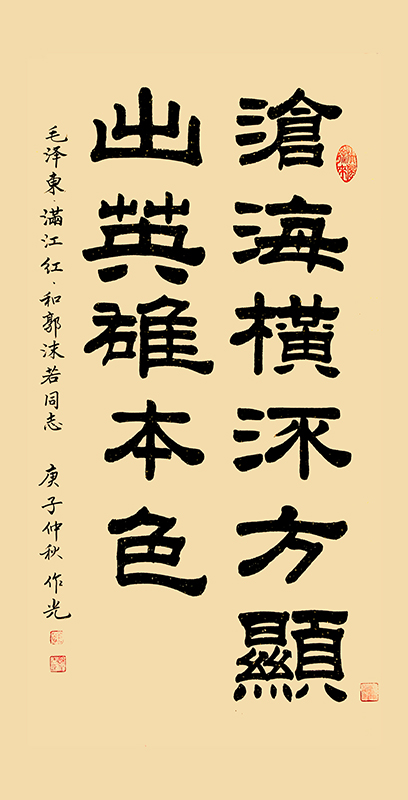 滄海橫流方顯
出英雄本色
毛泽東·滿江红·和郭沫若同志 庚子仲秋 作光